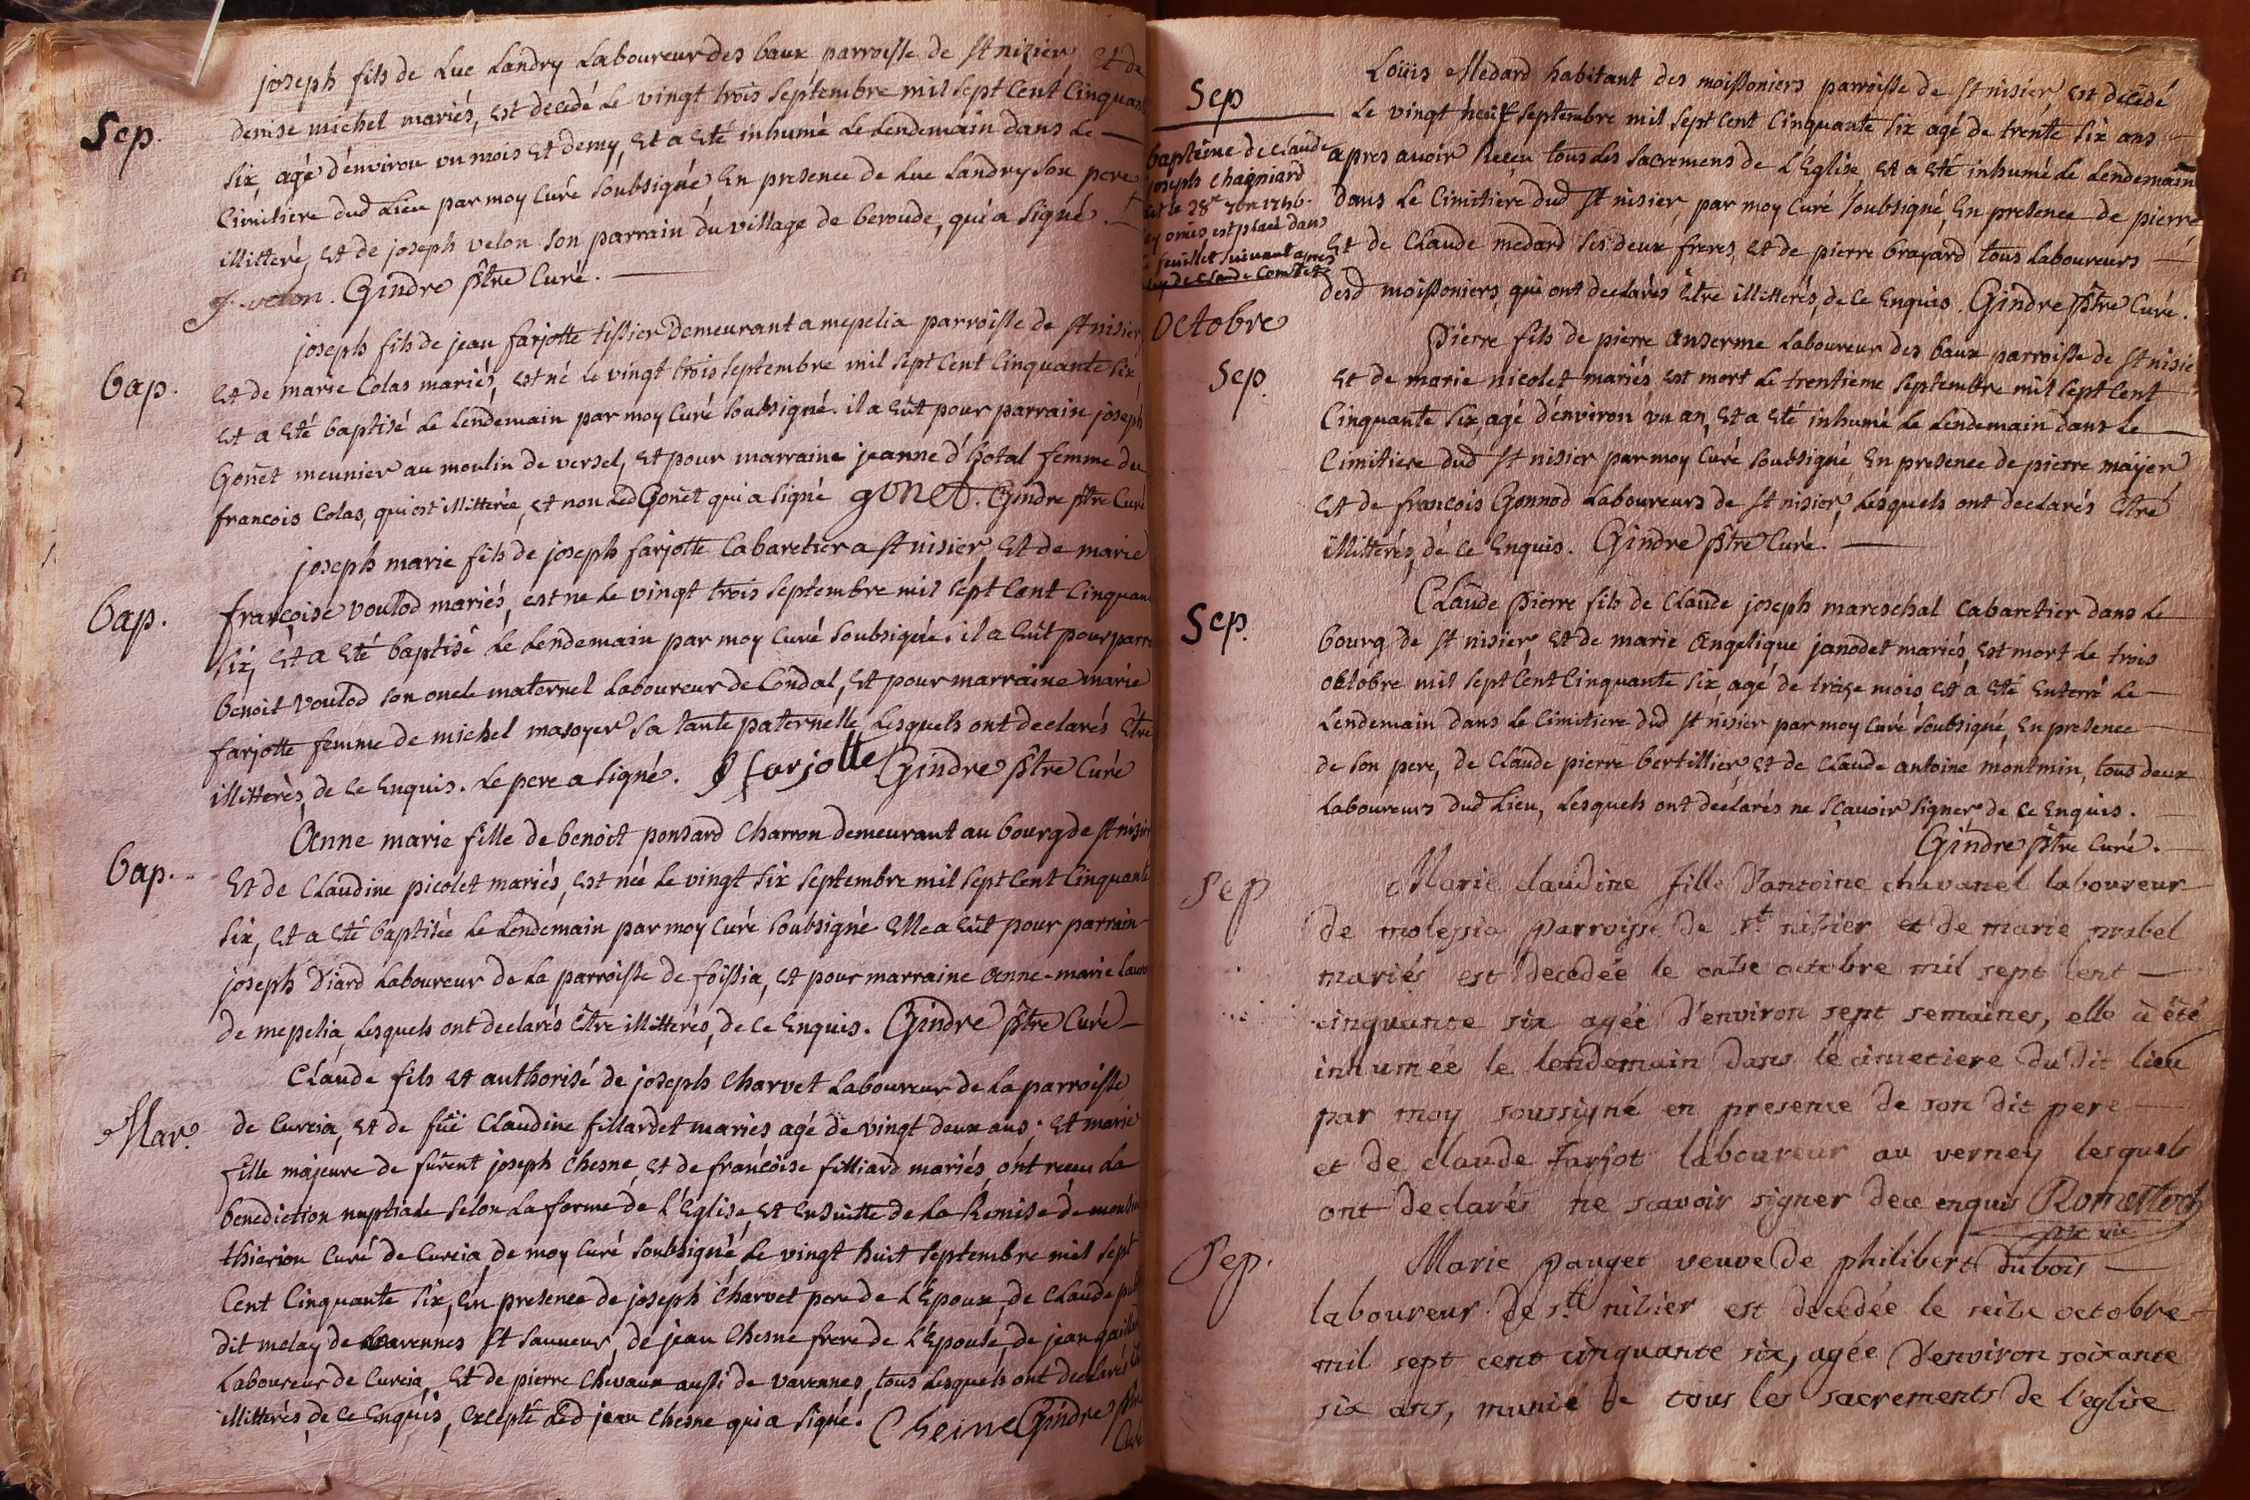 joseph fils de Luc Landry Laboureur des baux parroisse de st nizier, et de
Sep.
denise michel mariés, est décedé le vingt trois septembre mil sept cent cinquante
six, agé d'environ un mois et demy, et a eté inhumé le lendemain dans le
cimitiere dud lieu par moy curé soubsigné en presence de Luc Landry son pere
illitteré, et de joseph velon son parrain du village de beroude, qui a signé.
J. velon. Gindre ptre Curé.
joseph fils de jean farjotte tissier demeurant a mepelia parroisse de st nisier
bap.
et de marie Colas mariés, est né le vingt trois septembre mil sept cent cinquante six
et a eté baptisé le lendemain par moy curé soubsigné. il a eût pour parrain joseph
Gonet meunier au moulin de versel, et pour marraine jeanne d'hotal femme du
francois Colas, qui est illitterée, et non led Gonet qui a signé gonet. Gindre ptre Curé
joseph marie fils de joseph farjotte Cabaretier a st nisier, et de marie
bap.
françoise voulod mariés, est ne le vingt trois septembre mil sept cent cinquante
six, et a eté baptisé le lendemain par moy curé soubsigné. il a eût pour parrain
benoit voulod son oncle maternel laboureur de Condal, et pour marraine marie
farjotte femme de michel masoyer sa tante paternelle, lesquels ont declarés être
illitterés de ce enquis. le pere a signé. J farjotte Gindre ptre Curé
Anne marie fille de benoit ponsard Charron demeurant au bourg de st nisier
bap.
et de Claudine picolet mariés, est née le vingt six septembre mil sept cent cinquante
six, et a eté baptisée le lendemain par moy curé soubsigné elle a eût pour parrain
joseph diard laboureur de la parroisse de foissia, et pour marraine anne-marie
de mepelia, lesquels ont declarés être illitterés, de ce enquis. Gindre ptre Curé
Claude fils et authorisé de joseph Charvet laboureur de la parroisse
Mar.
de Curcia, et de füe Claudine fillardet mariés agé de vingt deux ans; et marie
fille majeure de furent joseph Chesne, et de françoise filliard mariés, ont receu la
benediction nuptiale selon la forme de l'Eglise, et ensuitte de la Remise de
thierion Curé de Curcia, de moy curé soubsigné, le vingt huit septembre mil sept
cent cinquante six, en presence de joseph Charvet pere de l'Epoux, de Claude
dit melay de varennes st sauveur, de jean Chesne frere de l'Epouse, de jean
laboureur de Curcia, et de pierre Chevaux aussi de varennes, tous lesquels ont declarés
illitterés, de ce enquis, excepté led jean Chesne qui a signé. Cheine Gindre ptre
Curé
Loüis Medard habitant des moissoniers parroisse de st nisier, est decedé
Sep
le vingt neuf septembre mil sept cent cinquante six agé de trente six ans
apres avoir Receu tous les sacremens de l'Eglise, et a eté inhumé le lendemain
dans le cimitiere dud st nisier, par moy curé soubsigné, en presence de pierre
et de Claude medard ses deux freres, et de pierre brayard tous laboureurs
desd moissoniers, qui ont declarés être illitterés, de ce enquis. Gindre ptre Curé.
baptême de Claude
joseph Chagniard
le 28e 7bre 1756.
omis est placé dans
feuillet suivant apres
de Claude Comtet
Octobre
Pierre fils de pierre anserme laboureur des baux parroisse de st nisie
Sep.
et de marie nicolet mariés est mort le trentieme septembre mil sept cent
cinquante six, agé d'environ un an, et a eté inhumé le lendemain dans le
cimitiere dud st nisier par moy curé soubsigné, en presence de pierre maÿer
et de françois Gonnod laboureurs de st nisier, lesquels ont declarés être
illitterés, de ce enquis. Gindre ptre Curé.
Claude pierre fils de Claude joseph mareschal cabaretier dans le
Sep.
bourg de st nisier, et de marie angelique janodet mariés, est mort le trois
octobre mil sept cent cinquante six agé de treize mois, et a eté enterré le
lendemain dans le cimitiere dud st nisier par moy curé soubsigné, en presence
de son pere, de Claude pierre bertillier, et de Claude antoine montmin, tous deux
laboureurs dud lieu, lesquels ont declarés ne sçavoir signer de ce enquis.
Gindre ptre Curé.
Marie claudine fille d'antoine chavanel laboureur
Sep
de molessia parroisse de st nizier et de marie mabel
mariés est decedée le onze octobre mil sept cent
cinquante six agée d'environ sept semaines, elle a été
inhumée le lendemain dans le cimetiere du dit lieu
par moy soussigné en presence de son dit pere
et de claude Farjot laboureur au verney lesquels
ont declarés ne scavoir signer de ce enquis
Marie pauget veuve de philibert dubois
Sep.
laboureur de st nizier est decedée le seize octobre
mil sept cent cinquante six, agée d'environ soixante
six ans, munie de tous les sacrements de l'eglise